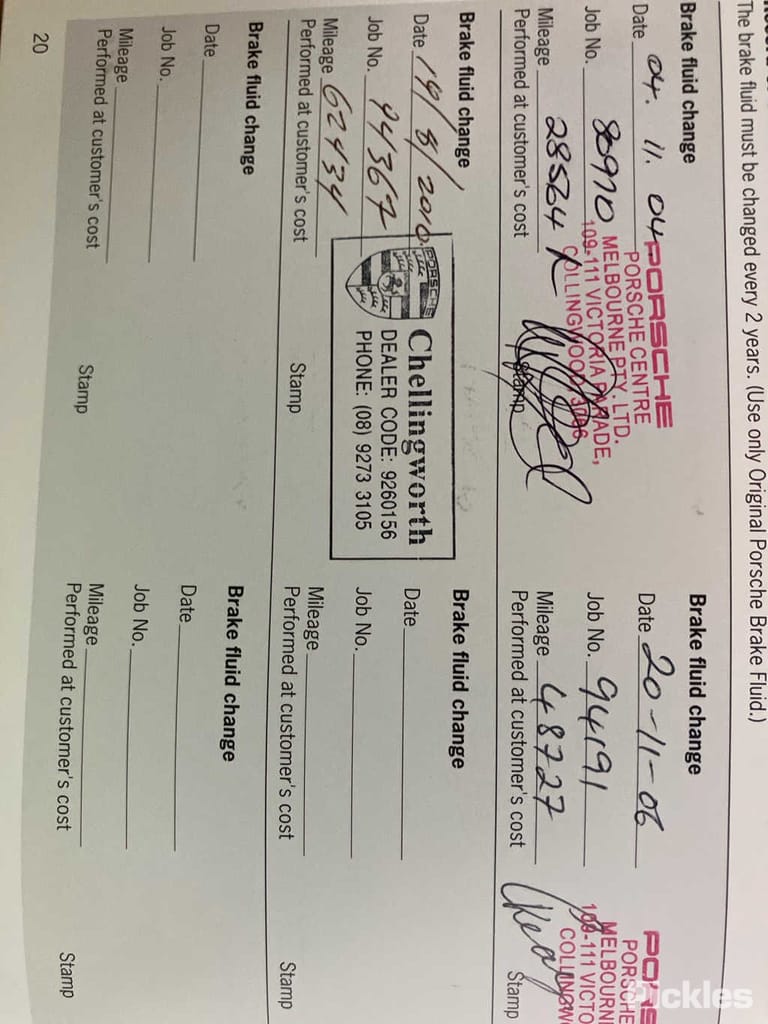 The brake fluid must be changed every 2 years. (Use only Original Porsche Brake Fluid.)
Brake fluid change
Date 04. 11. 04
Job No. 80970
Mileage 28564 K
Performed at customer's cost
PORSCHE
PORSCHE CENTRE
MELBOURNE PTY. LTD.
109-111 VICTORIA PARADE,
COLLINGWOOD 3066
Stamp
Brake fluid change
Date 20-11-06
Job No. 94191
Mileage 48727
Performed at customer's cost
PORS
PORSCHE
MELBOURN
109-111 VICTO
COLLINGW
Stamp
Brake fluid change
Date 19/8/2010.
Job No. 94367
Mileage 62434
Performed at customer's cost
PORSCHE
Chellingworth
DEALER CODE: 9260156
PHONE: (08) 9273 3105
Stamp
Brake fluid change
Date
Job No.
Mileage
Performed at customer's cost
Stamp
Brake fluid change
Date
Job No.
Mileage
Performed at customer's cost
Stamp
Brake fluid change
Date
Job No.
Mileage
Performed at customer's cost
Stamp
20
Pickles